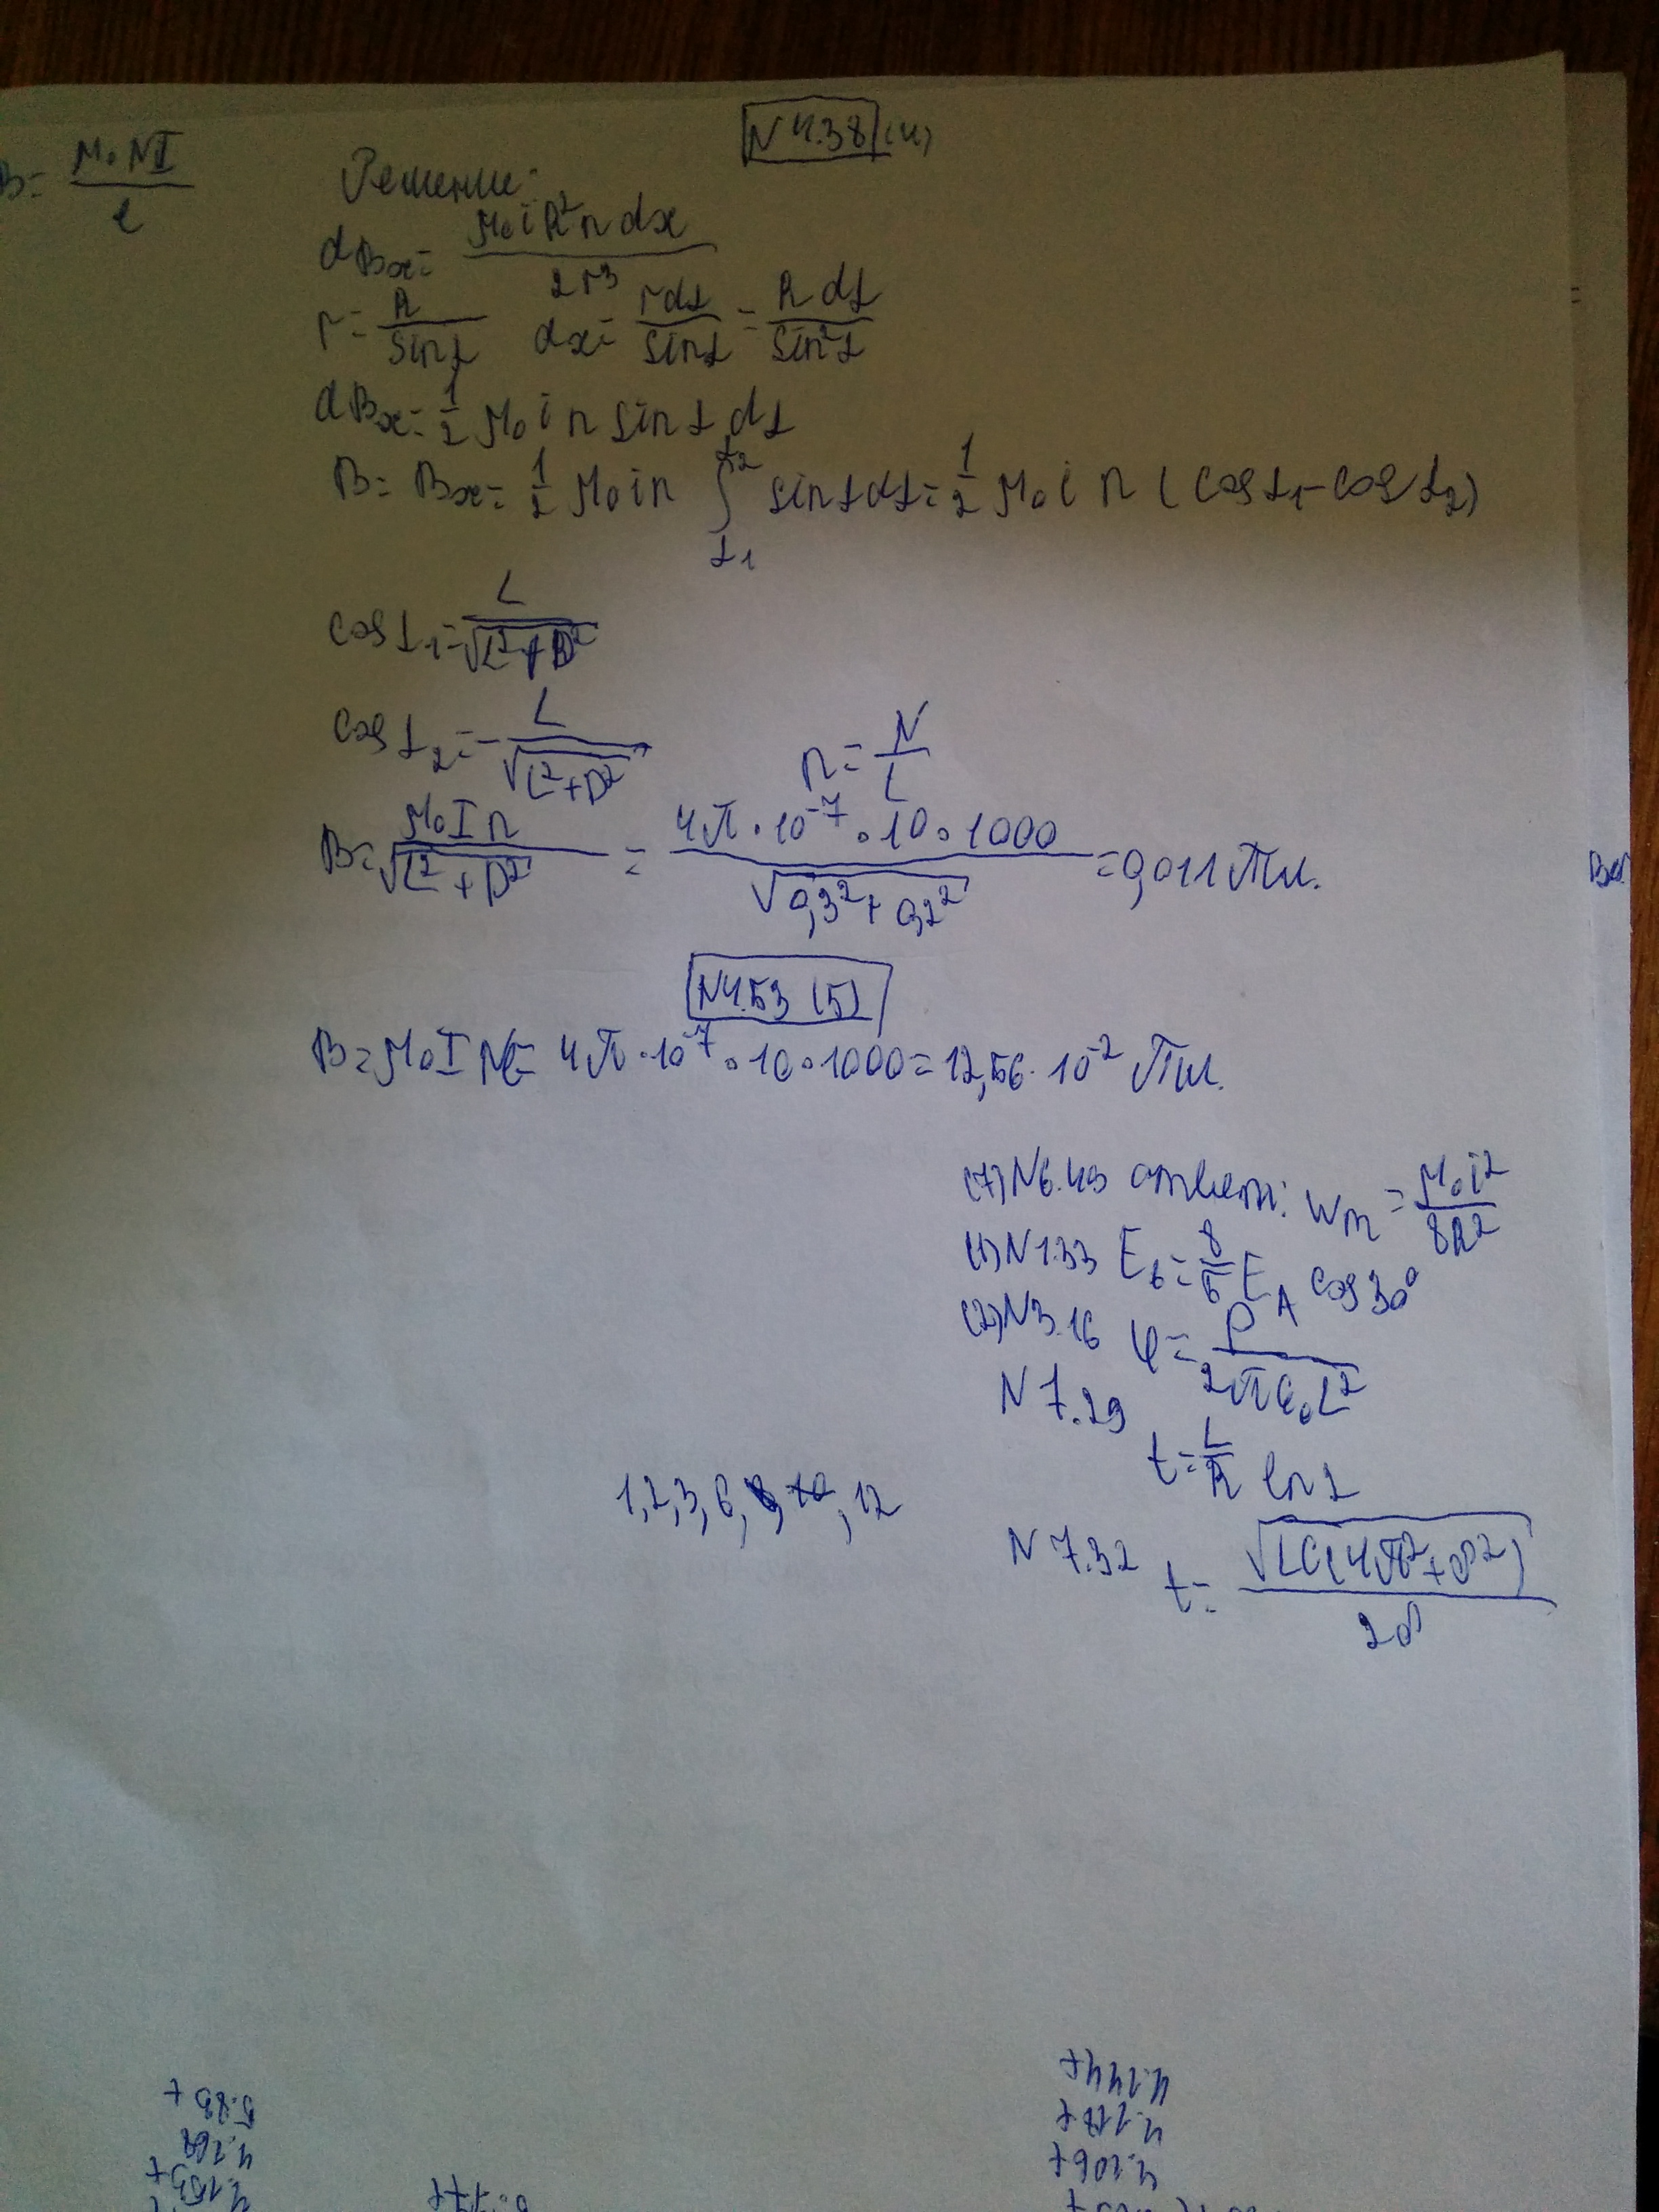 N 4.38 (4)
B = μ₀NI / l
Решение:
dBx = μ₀iR²n dx / 2r³
r = R / sinα dx = rdα / sinα = R dα / sin²α
dBx = 1/2 μ₀ i n sinα dα
B = Bx = 1/2 μ₀ i n ∫ α₁ α₂ sinα dα = 1/2 μ₀ i n (cosα₁ - cosα₂)
cosα₁ = L / √L²+D²
cosα₂ = - L / √L²+D² n = N / L
B = μ₀ I n / √L²+D² = 4π·10⁻⁷·10·1000 / √0,3²+0,2² = 0,011 Тл.
N4.53 (5)
B = μ₀ I N = 4π·10⁻⁷·10·1000 = 12,56·10⁻² Тл.
(7) N6.49 ответ: Wm = μ₀i² / 8R²
(1) N1.33 E = 8/5 E_A cos30°
(2) N3.16 φ = P / 2πε₀L²
N 7.29
t = L/R ln 2
1,2,3,6, 10, 12
N 7.32 t = √LC(4π²+δ²) / 2δ
4.144+
4.117+
4.106+
5.89 +
4.168
4.153+